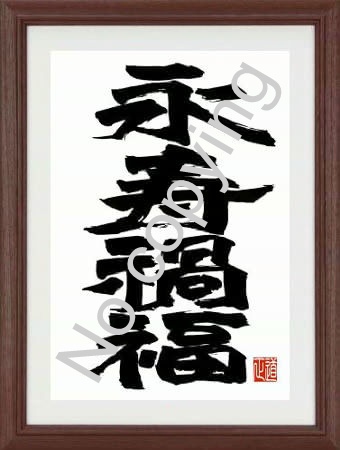 永寿禍福
道正
No copying